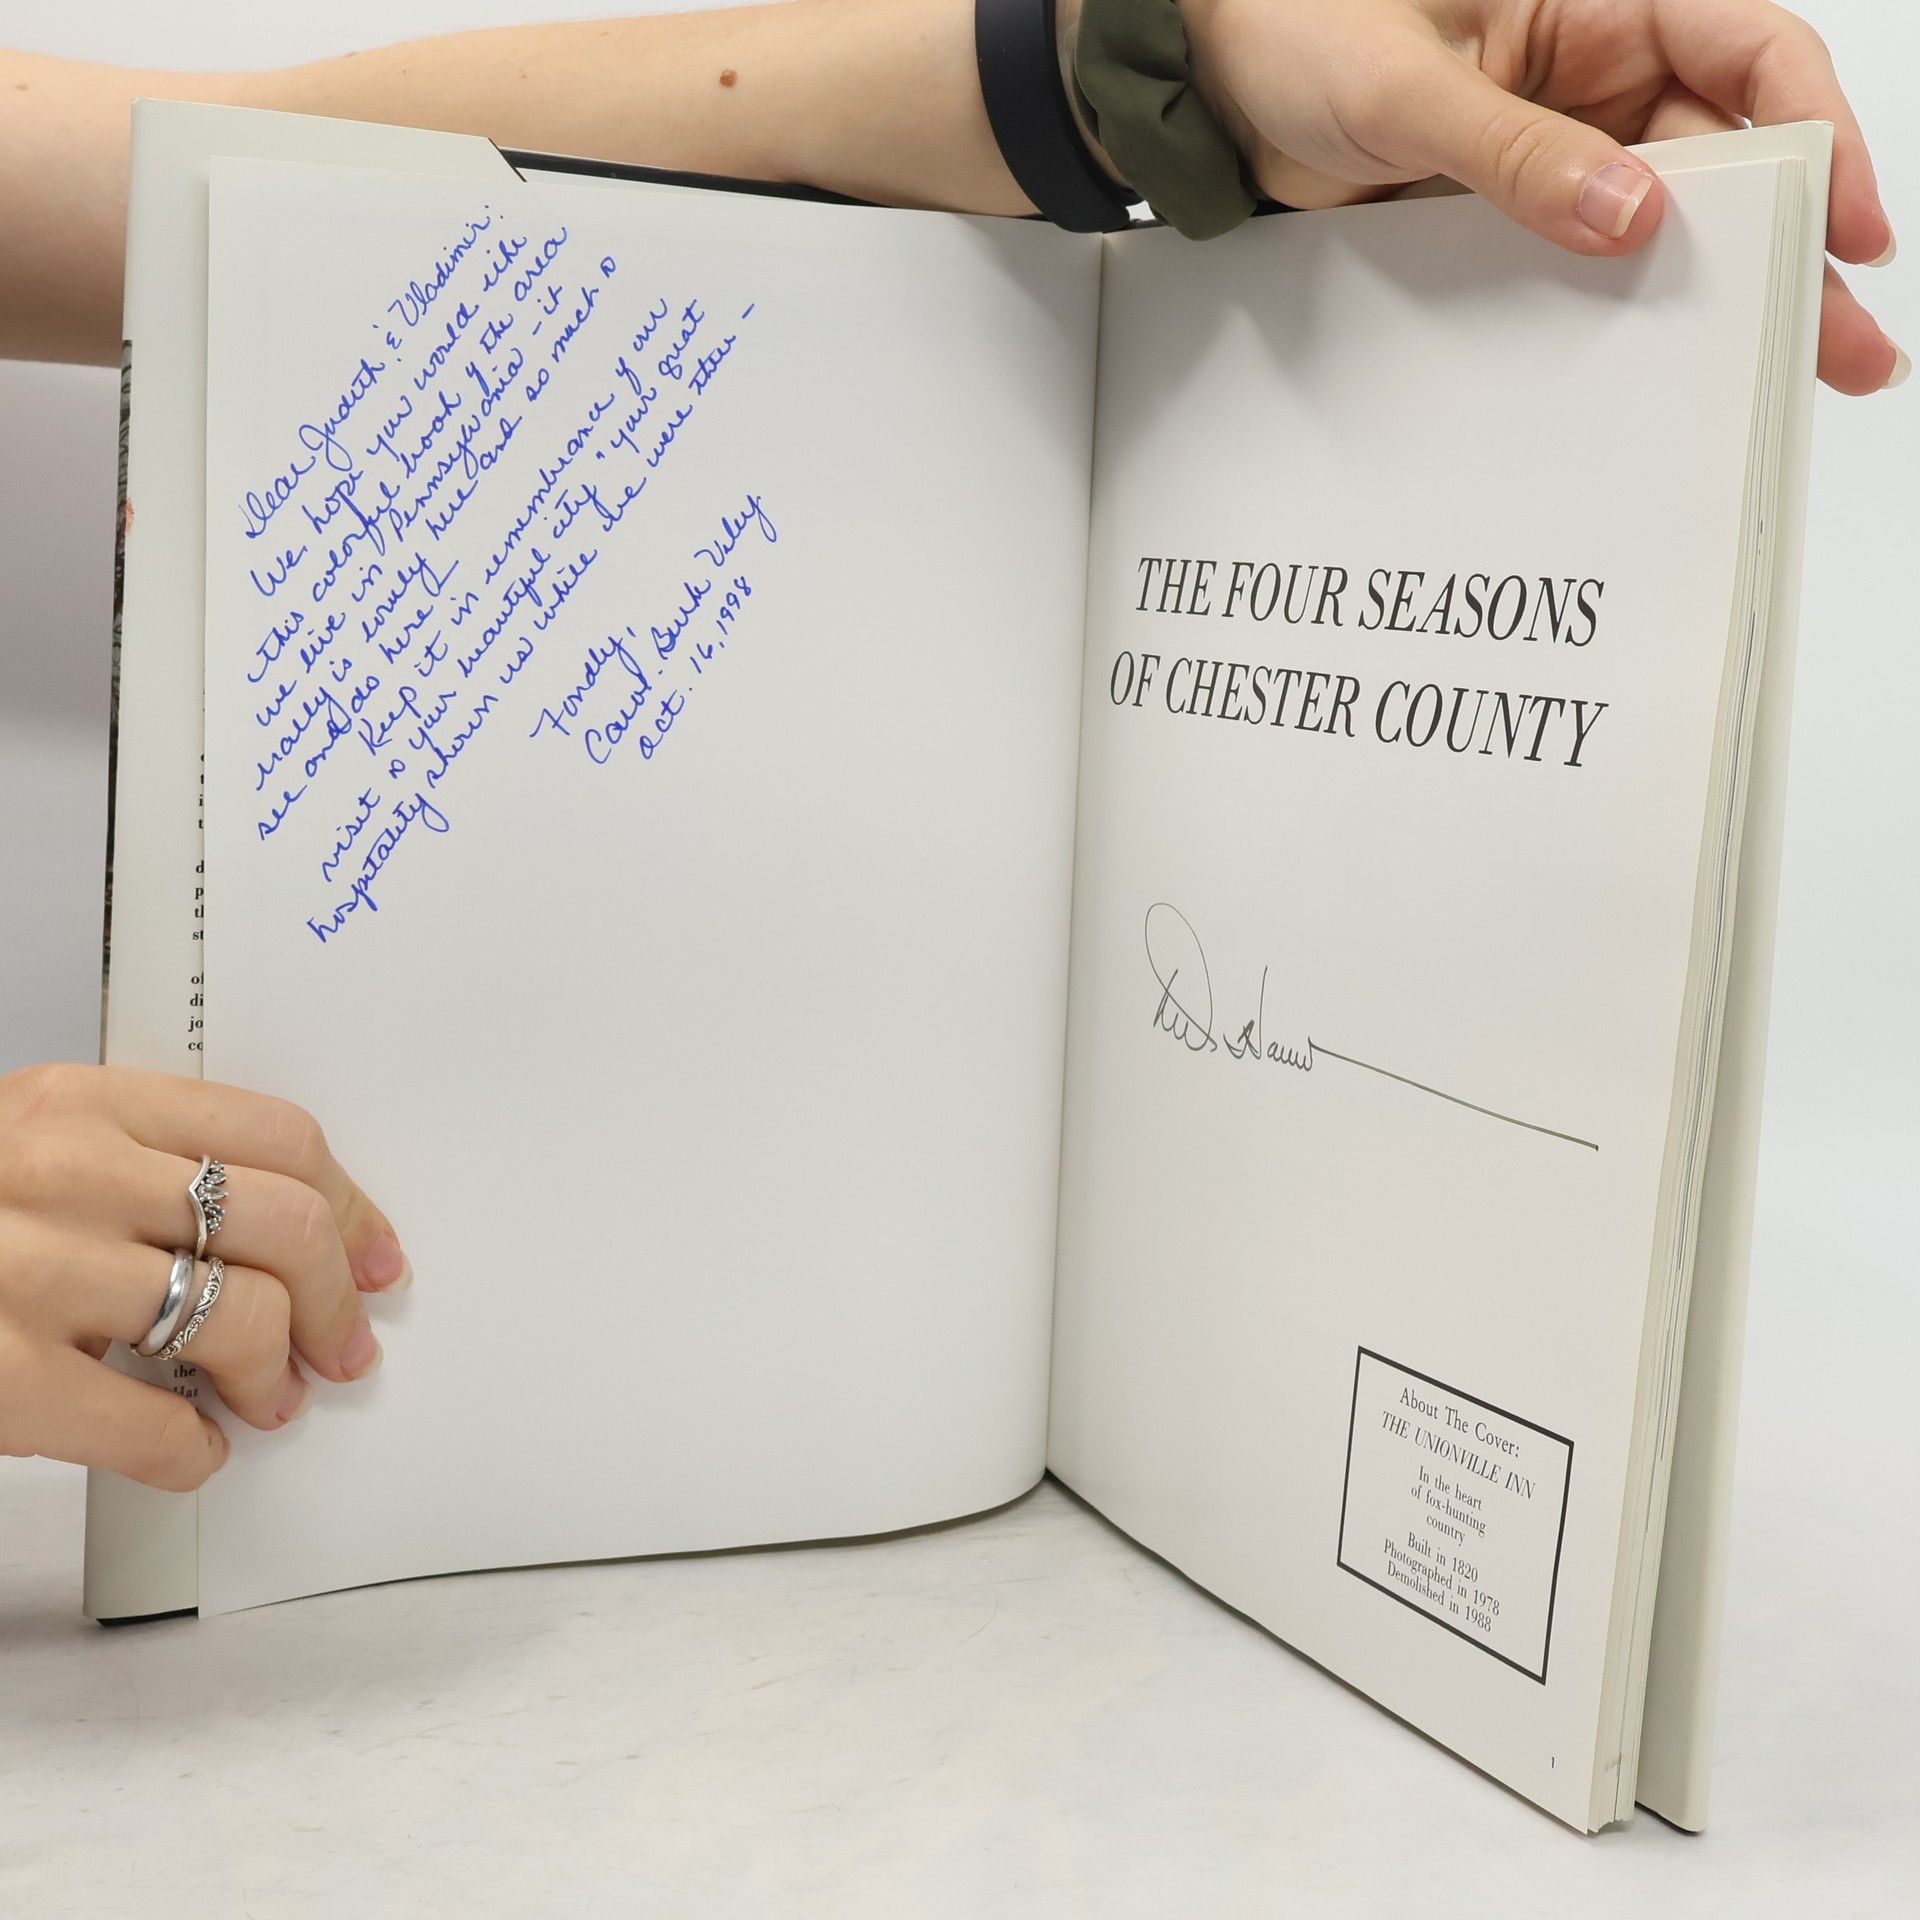 Dear Judith & Vladimir:
We hope you would like
this colorful book of the area
we live in Pennsylvania - it
really is lovely here and so much to
see and do here!
Keep it in remembrance of our
visit to your beautiful city & your great
hospitality shown us while we were there -
Fondly,
Carol
Oct. 16, 1998
THE FOUR SEASONS
OF CHESTER COUNTY
About The Cover:
THE UNIONVILLE INN
In the heart
of fox-hunting
country
Built in 1820
Photographed in 1978
Demolished in 1988
1